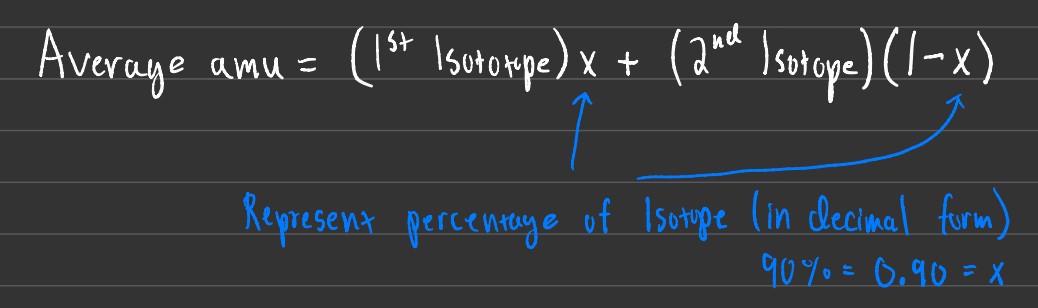 Average amu = (1st Isotope)x + (2nd Isotope)(1-x)
Represent percentage of Isotope (in decimal form)
90% = 0.90 = x